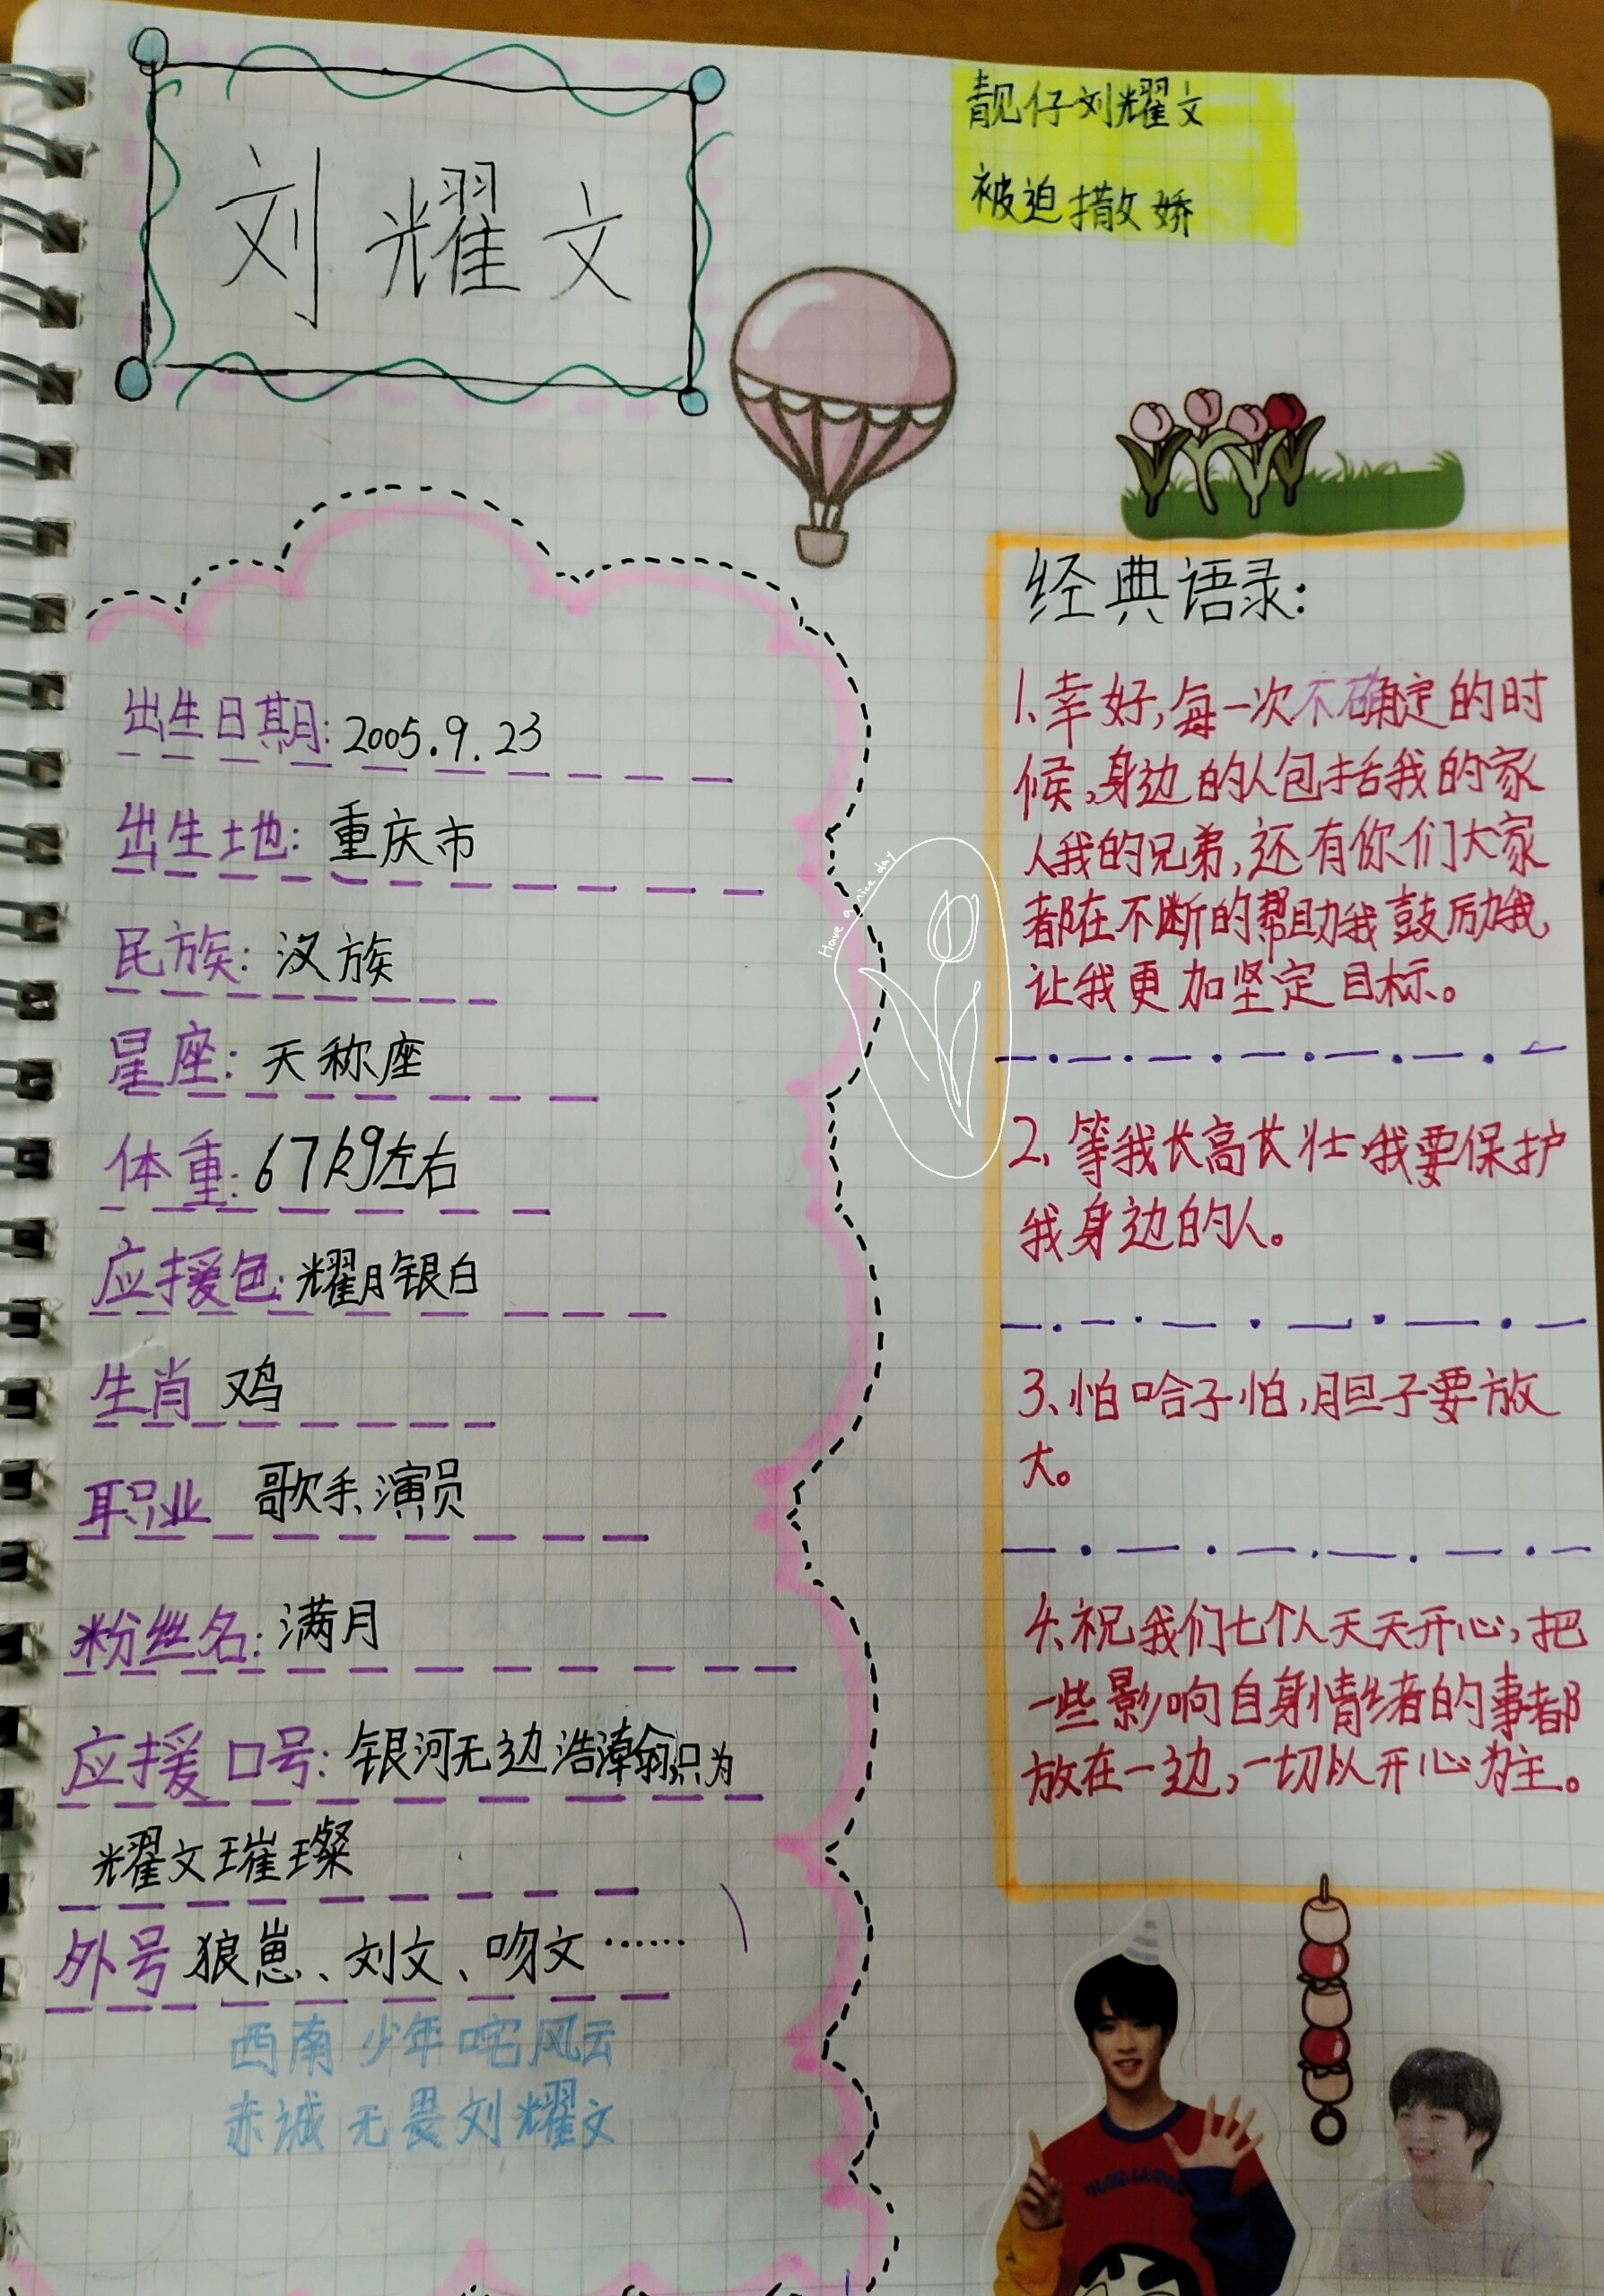 刘耀文
靓仔刘耀文
被迫撒娇
出生日期:2005.9.23
出生地:重庆市
民族:汉族
星座:天称座
体重:67kg左右
应援色:耀月银白
生肖 鸡
职业 歌手、演员
粉丝名:满月
应援口号:银河无边浩瀚只为
耀文璀璨
外号 狼崽、刘文、吻文……
西南少年咤风云
赤诚无畏刘耀文
Have a nice day
经典语录:
1、幸好,每一次不确定的时
候,身边的人包括我的家
人我的兄弟,还有你们大家
都在不断的帮助我鼓厉我,
让我更加坚定目标。
2、等我长高长壮·我要保护
我身边的人。
3、怕哈子怕,胆子要放
大。
4、祝我们七个人天天开心,把
一些影响自身情绪的事都
放在一边,一切以开心为主。